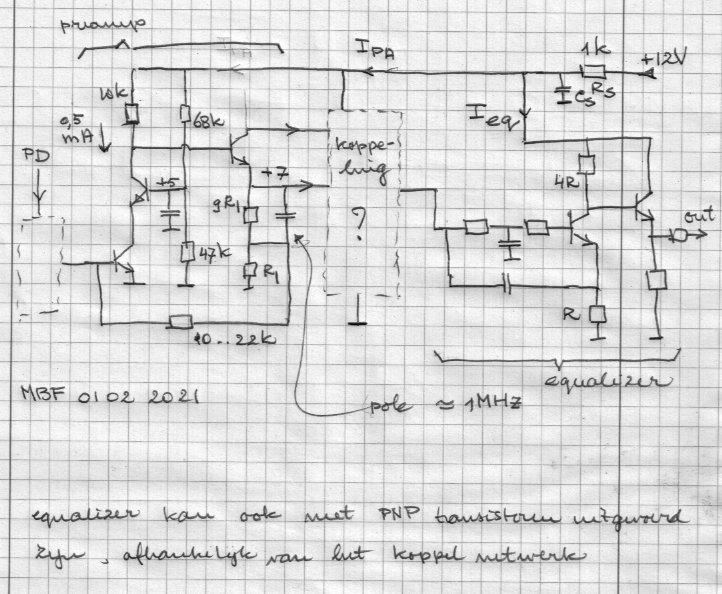 preamp
I_PA
1k
+12V
10k
68k
C_S
R_S
0,5
mA
I_eq
PD
koppe-
ling
+7
4R
+5
9R_1
?
out
47k
R_1
R
10..22k
equalizer
MBF 01 02 2021
pole ≈ 1MHz
equalizer kan ook met PNP transistoren uitgevoerd
zijn, afhankelijk van het koppel netwerk